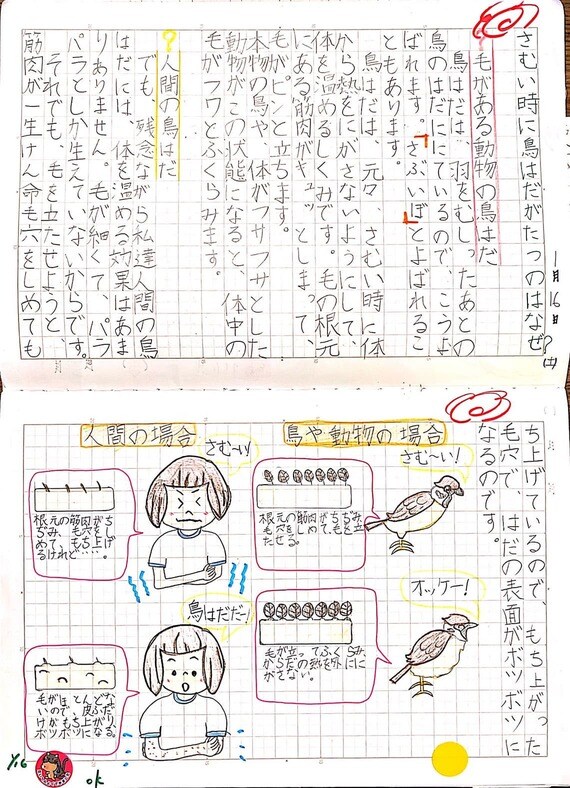 1月16日(土)
さむい時に鳥はだがたつのはなぜ?
?毛がある動物の鳥はだ
鳥はだは、羽をむしったあとの
鳥のはだににているので、こうよ
ばれます。「さぶいぼ」とよばれるこ
ともあります。
鳥はだは、元々、さむい時に体
から熱をにがさないようにして、
体を温めるしくみです。毛の根元
にある筋肉がギュッとしまって、
毛がピンと立ちます。
本物の鳥や、体がフサフサとした
動物がこの状態になると、体中の
毛がフワとふくらみます。
?人間の鳥はだ
でも、残念ながら私達人間の鳥
はだには、体を温める効果はあま
りありません。毛が細くて、パラ
パラとしか生えていないからです。
それでも、毛を立たせようと、
筋肉が一生けん命毛穴をしめても
ち上げているので、もち上がった
毛穴で、はだの表面がボツボツに
なるのです。
鳥や動物の場合
さむ〜い!
根元の筋肉がちぢみ、
毛穴をしめて毛を立
たせる。
オッケー!
毛が立ってふくらみ、
からだの熱を外にに
がさない。
人間の場合
さむ〜い!
根元の筋肉がち
ぢみ、毛穴を
めて、もち上げ
るけれど……
鳥はだだー!
毛がほとんどな
いので、皮ふだ
けがもち上がり、
ボツボツになる。
1/16
ok